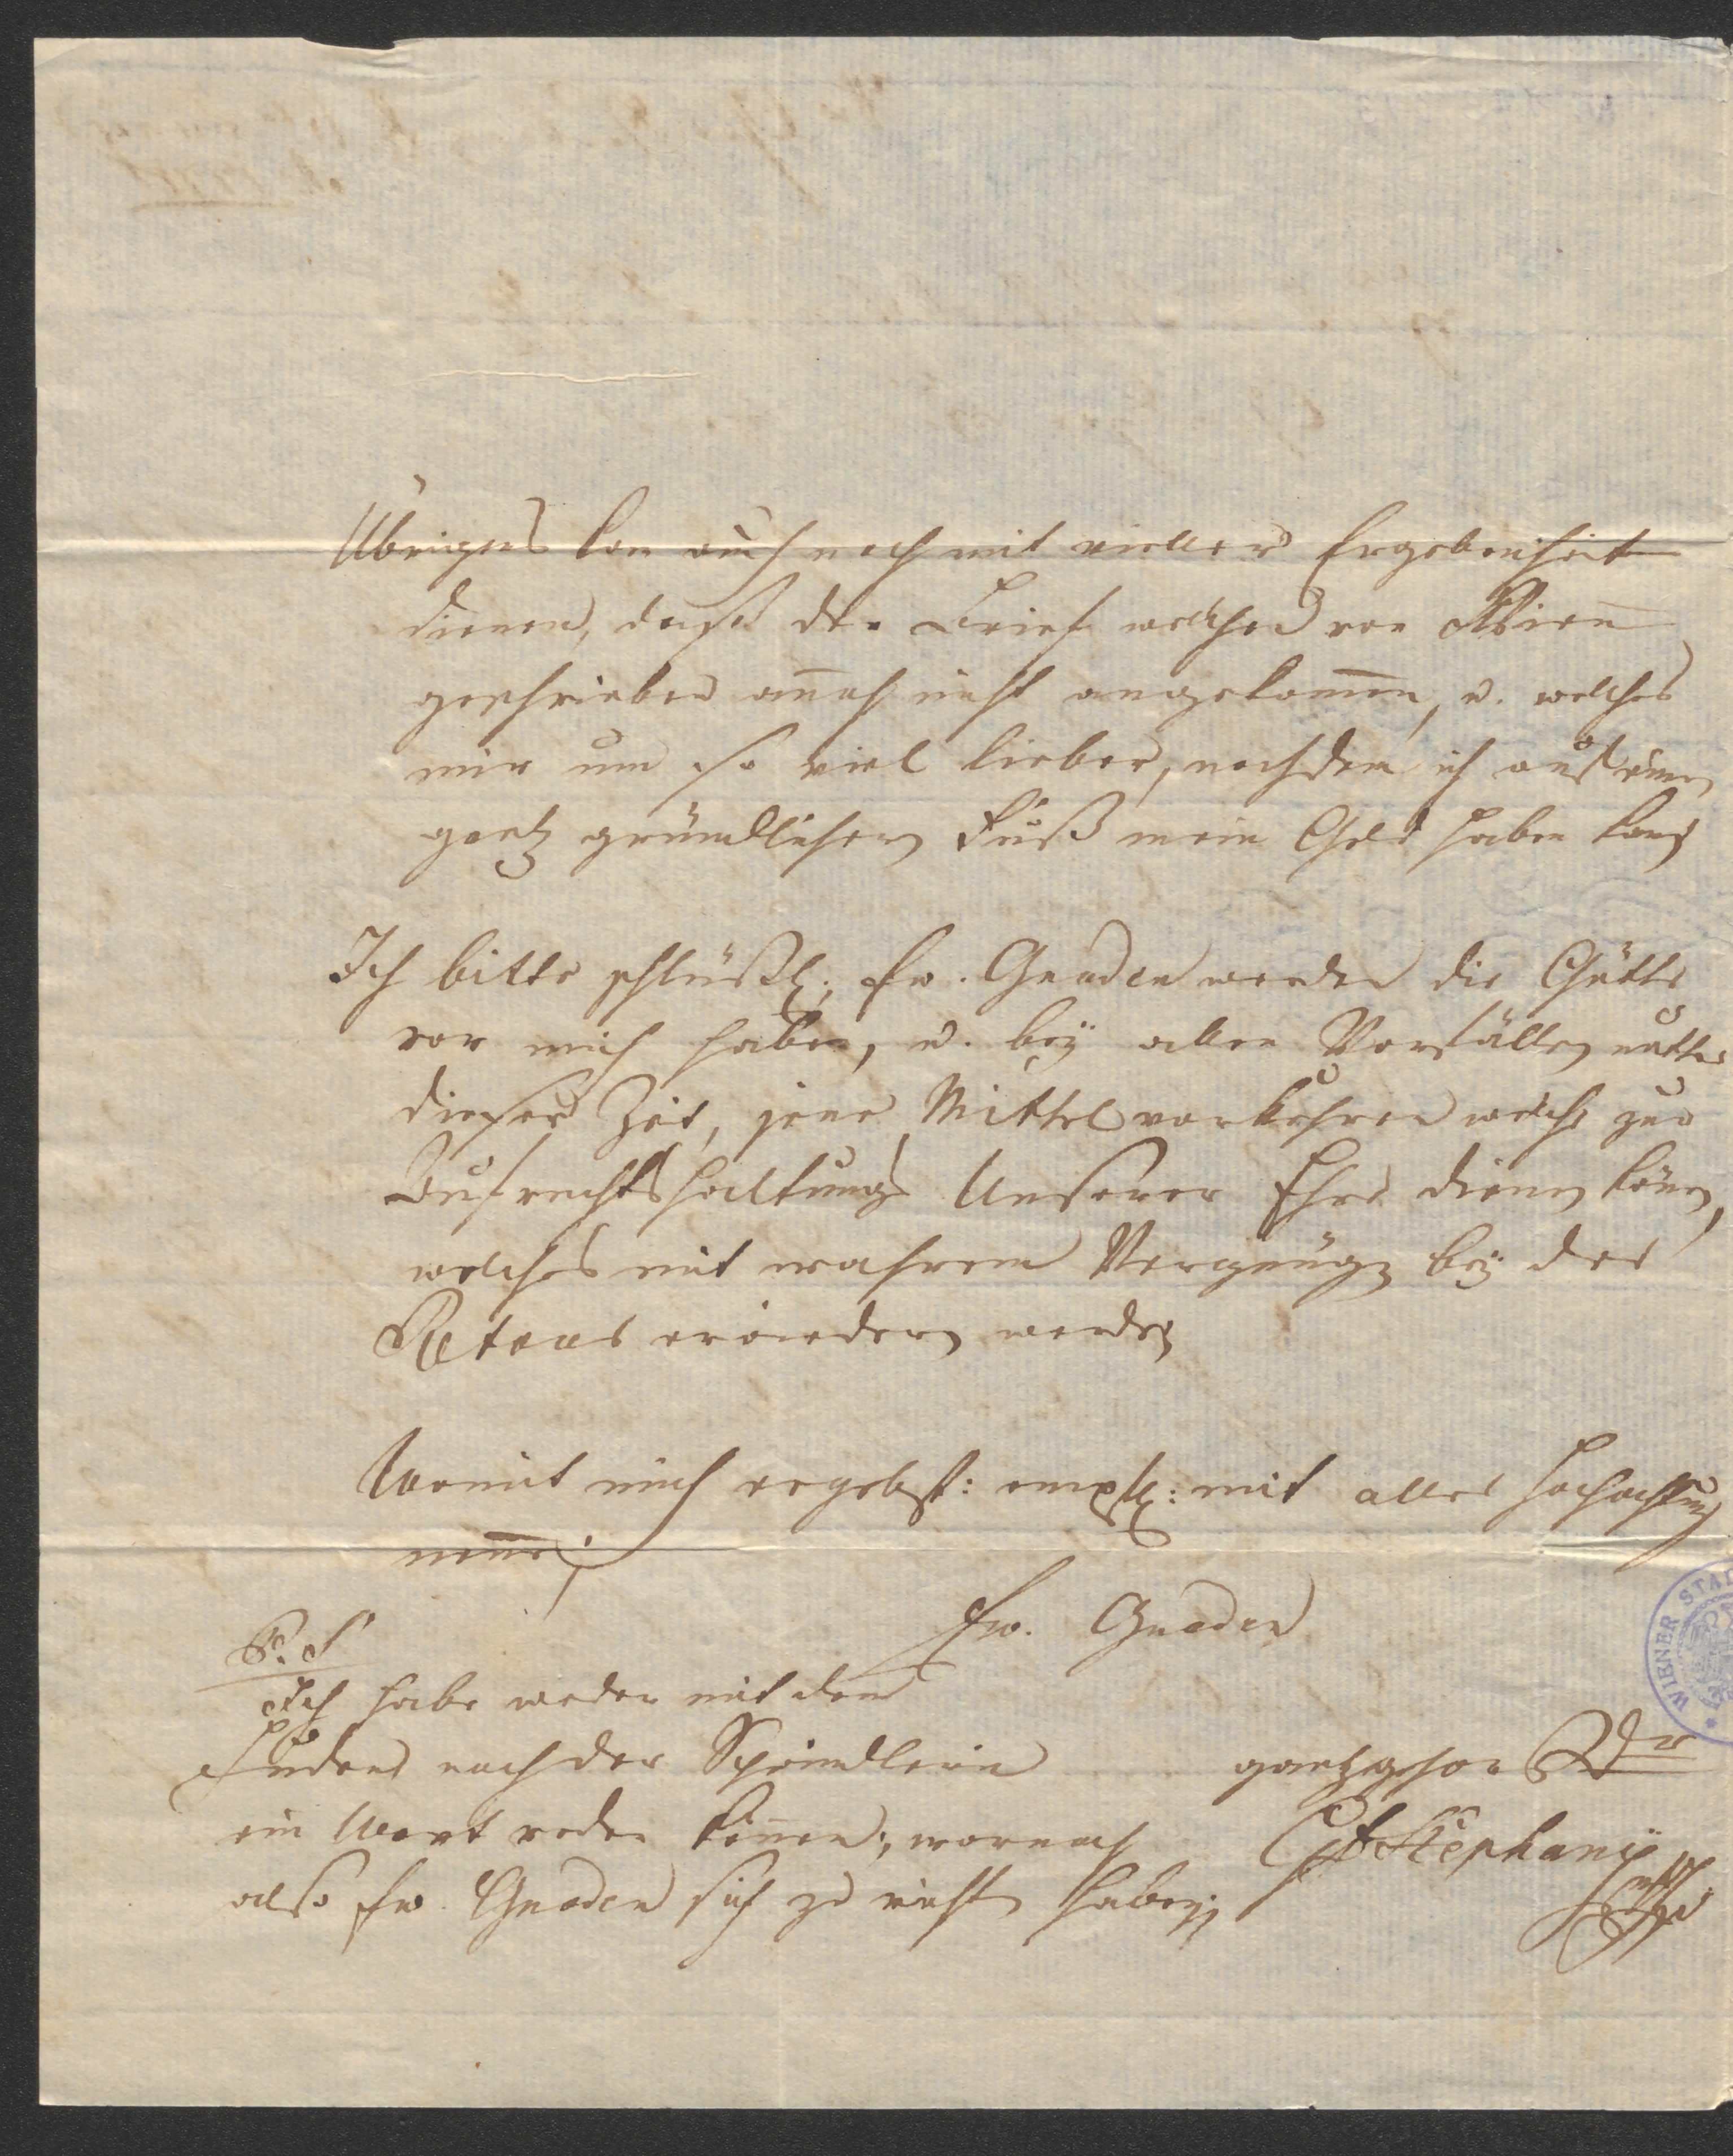 Übrigens kan auch noch mit vieller Ergebenheit
dienen, daß der Brief welchen von Wien
geschrieben annoch nicht angekom̄en, u. welches
mir um so viel lieber, nachdem ich auf einen
gantz gründlichen Fuß mein Geld haben kan
Ich bitte schlüßl: Ew. Gnaden werden die Gütte
vor mich haben, u. bey allen Vorfällen unter
dieser Zeit, jene Mittel vorkehren welche zur
Aufrechtshaltung Unserer Ehre dienen könen,
welches mit wahrem Vergnügen bey der
Retour erwiedern werde
Womit mich ergebst: empfl: mit aller Hochachtung
nen̄e;
Ew. Gnaden
P. S
Ich habe weder mit dem
Juden noch der Spändlerin
ein Wort reden können; wornach
also Ew. Gnaden sich zu richten haben;
gantz ghor Dr
Gf Stephanÿ
WIENER STA